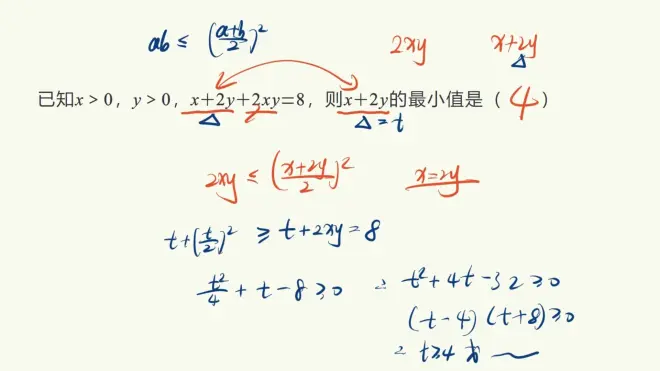 ab ≤ ((a+b)/2)² 2xy x+2y
△
已知x > 0，y > 0，x+2y+2xy=8，则x+2y的最小值是（ 4 ）
△ △ = t
2xy ≤ ((x+2y)/2)² x=2y
t+(t/2)² ≥ t+2xy = 8
t²/4 + t - 8 ≥ 0 t²+4t-32 ≥ 0
(t-4)(t+8) ≥ 0
t≥4